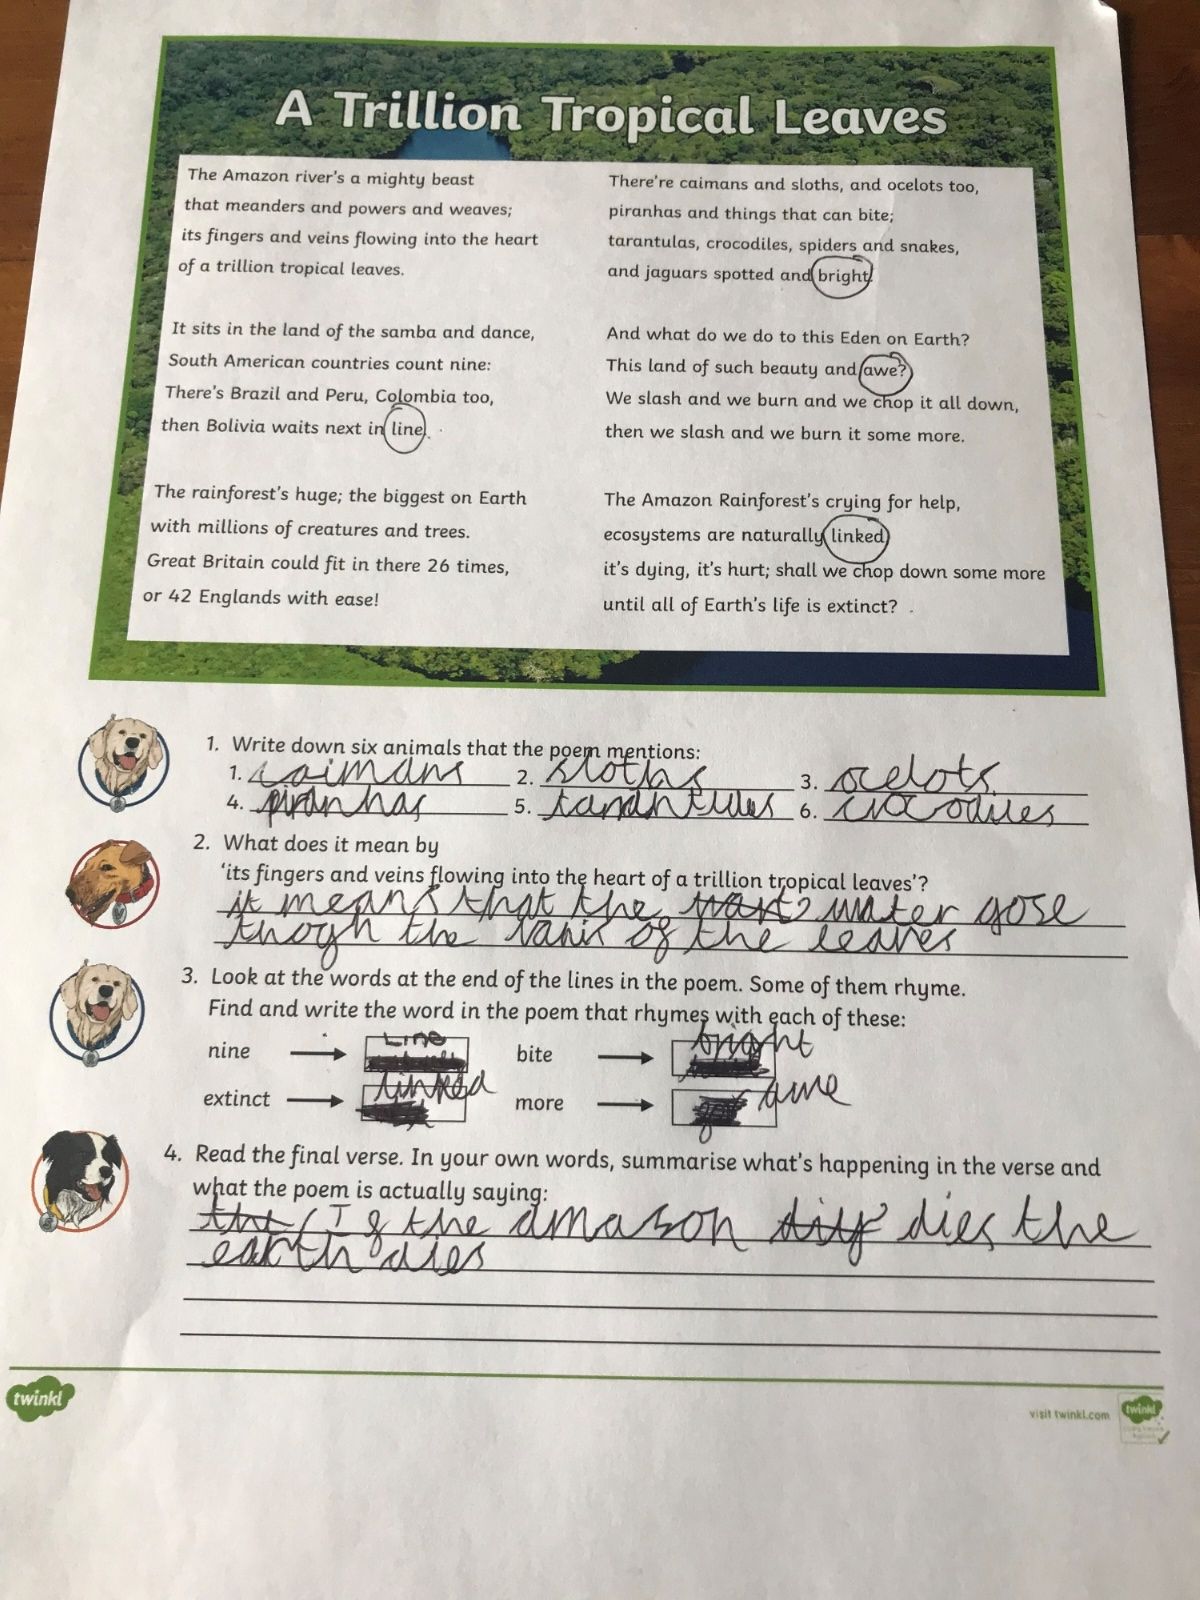 A Trillion Tropical Leaves
The Amazon river's a mighty beast
that meanders and powers and weaves;
its fingers and veins flowing into the heart
of a trillion tropical leaves.
It sits in the land of the samba and dance,
South American countries count nine:
There's Brazil and Peru, Colombia too,
then Bolivia waits next in line.
The rainforest's huge; the biggest on Earth
with millions of creatures and trees.
Great Britain could fit in there 26 times,
or 42 Englands with ease!
There're caimans and sloths, and ocelots too,
piranhas and things that can bite;
tarantulas, crocodiles, spiders and snakes,
and jaguars spotted and bright.
And what do we do to this Eden on Earth?
This land of such beauty and awe?
We slash and we burn and we chop it all down,
then we slash and we burn it some more.
The Amazon Rainforest's crying for help,
ecosystems are naturally linked;
it's dying, it's hurt; shall we chop down some more
until all of Earth's life is extinct?
1. Write down six animals that the poem mentions:
1. caimans 2. sloths 3. ocelots.
4. piranhas 5. 6.
2. What does it mean by
'its fingers and veins flowing into the heart of a trillion tropical leaves'?
it means that the water gose
thogh the of the leaves
3. Look at the words at the end of the lines in the poem. Some of them rhyme.
Find and write the word in the poem that rhymes with each of these:
nine Line bite bright
extinct linked more awe
4. Read the final verse. In your own words, summarise what's happening in the verse and
what the poem is actually saying:
If the amason dies the
earth dies
twinkl
visit twinkl.com twinkl